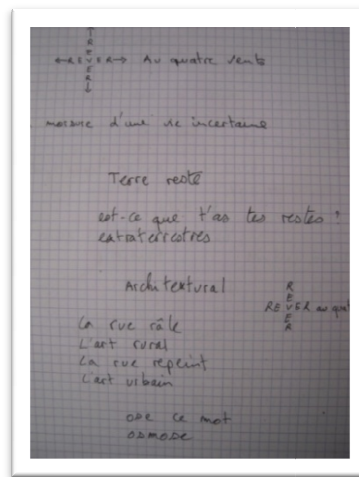 ↑
R
E
←REVER→ Au quatre vents
E
R
↓
morsure d'une vie incertaine
Terre reste
est-ce que t'as tes restes ?
extraterrestres
Architextural
R
E
REVER au quat
E
R
La rue râle
L'art rural
La rue repeint
L'art urbain
ODE ce mot
ODMODE